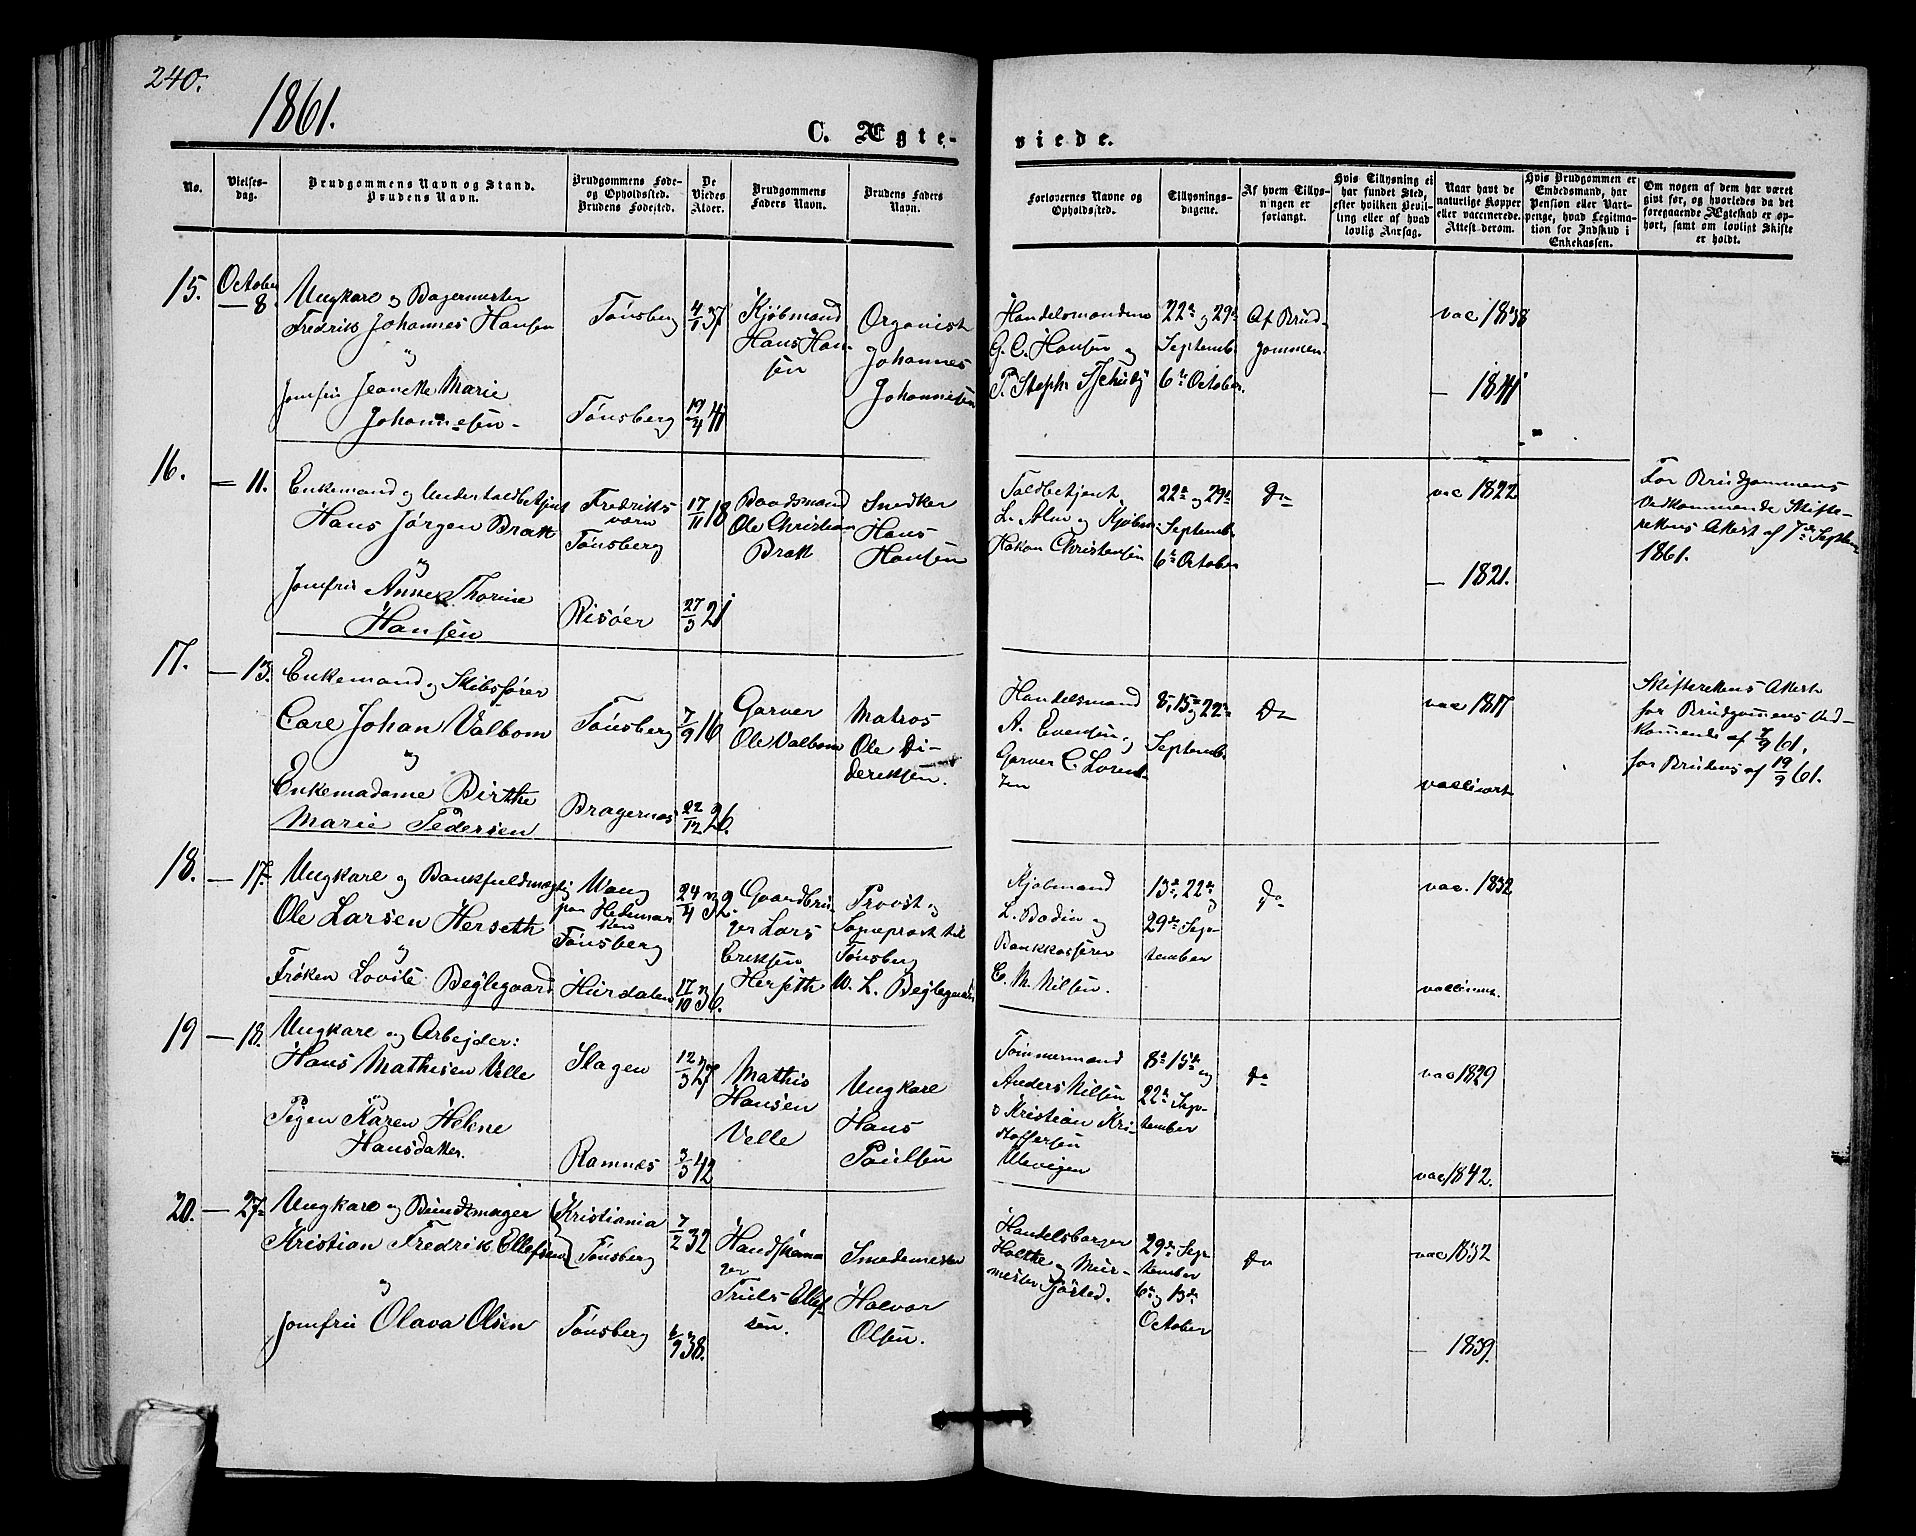 240.
1861.
C. Ægte-
viede.
No.
Vielses-
dag.
Brudgommens Navn og Stand.
Brudens Navn.
Brudgommens Føde-
og Opholdssted.
Brudens Fødested.
De
Viedes
Alder.
Brudgommens
Faders Navn.
Brudens Faders
Navn.
Forlovernes Navne og
Opholdssted.
Tillysnings-
dagene.
Af hvem Tillys-
ningen er
forlangt.
Hvis Tillysning ei
har fundet Sted,
efter hvilken Bevil-
ling eller af hvad
lovlig Aarsag.
Naar havt de
naturlige Kopper
eller vaccinerede.
Attest derom.
Hvis Brudgommen er
Embedsmand, har
Pension eller Vart-
penge, hvad Legitima-
tion for Indskud i
Enkekassen.
Om nogen af dem har været
givt før, og hvorledes da det
foregaaende Ægteskab er op-
hørt, samt om lovligt Skifte
er holdt.
15.
October
— 8.
Ungkarl og Bagermester
Fredrik Johannes Hansen
og
Jomfru Jeanette Marie
Johannesen
Tønsberg
Tønsberg
4/1 37
19/4 41
Kjøbmand
Hans Han-
sen
Organist
Johannes
Johannesen
Handelsmændene
G. C. Hansen og
P. Steph.
22de og 29de
Septemb.
6te October.
Af Brud-
gommen
vac 1838
— 1841
16.
— 11.
Enkemand og Undertoldbetjent
Hans Jørgen Bratt
og
Jomfru Anne Thorine
Hansen
Fredriks
værn
Tønsberg
Risøer
17/11 18
27/3 21
Baadsmand
Ole Christian
Bratt
Snedker
Hans
Hansen
Toldbetjent
L. Holm og Kjøbm.
Hakon Christensen
22de og 29de
Septemb.
6te October
Do
vac 1822
— 1821.
For Brudgommens
Vedkommende Skifte-
rettens Attest af 7de Septem
1861.
17.
— 13.
Enkemand og Skibsfører
Carl Johan Valbom
og
Enkemadame Birthe
Marie Pedersen
Tønsberg
Bragernæs
7/9 16
22/12 26.
Garver
Ole Valbom
Matros
Ole Di-
deriksen.
Handelsmand
A. Evensen og
Garver C. Lorent-
zen
8, 15de og 22de
Septemb.
Do
vac 1817
vaccinert
Skifterettens Attest
for Brudgommens Ved-
kommende af 7/9 61.
for Brudens af 19/9 61.
18.
— 17.
Ungkarl og Bankfuldmægtig
Ole Larsen Herseth
og
Frøken Lovise Beglegaard
Wang
paa Hedemar-
ken
Tønsberg
Hurdalen
24/4 32.
17/10 36.
Gaardbru-
ger Lars
Eriksen
Herseth
Provst og
Sogneprest til
Tønsberg
W. L. Beglegaard
Kjøbmand
L. Bodin og
Bankkasserer
C. M. Nilsen.
15de, 22de og
29de Sep-
tember
Do
vac. 1832
vaccineret
19
— 18.
Ungkarl og Arbejder:
Hans Mathisen Velle
og
Pigen Karen Helene
Hansdatter.
Slagen
Ramnes
12/3 27
3/3 42
Mathis
Hansen
Velle
Ungkarl
Hans
Paulsen
Tømmermand
Anders Nilsen
o Kristian Kri-
stoffersen
Ulevigen
8de 15de og
22de Sep-
tember
Do
vac 1829
vac 1842.
20.
— 27.
Ungkarl og Buntmager
Kristian Fredrik Ellefsen
og
Jomfru Olava Olsen
Kristiania
Tønsberg
Tønsberg
7/2 32
6/9 38.
Handskema-
ger
Truls Ellef-
sen.
Smedemester
Halvor
Olsen.
Handelsborger
Holthe og Mur-
mester Sjøsted.
29de Sep-
tember
6te og 13de
October
Do
vac 1832
— 1839.